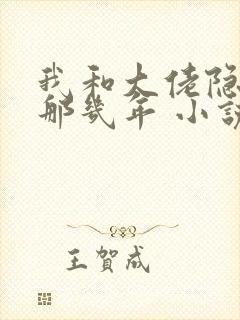 我和大佬隐
那几年 小说
王贺成